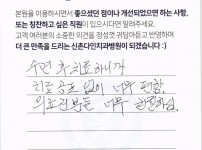 본원을 이용하시면서 좋으셨던 점이나 개선되었으면 하는 사항,
또는 칭찬하고 싶은 직원이 있으시다면 알려주세요.
고객 여러분의 소중한 의견을 정성껏 귀담아듣고 반영하여
더 큰 만족을 드리는 신촌다인치과병원이 되겠습니다 :)
수면 후 치료하니까
치료 공포 없이 너무 편함
의료진분들 너무 친절하심.